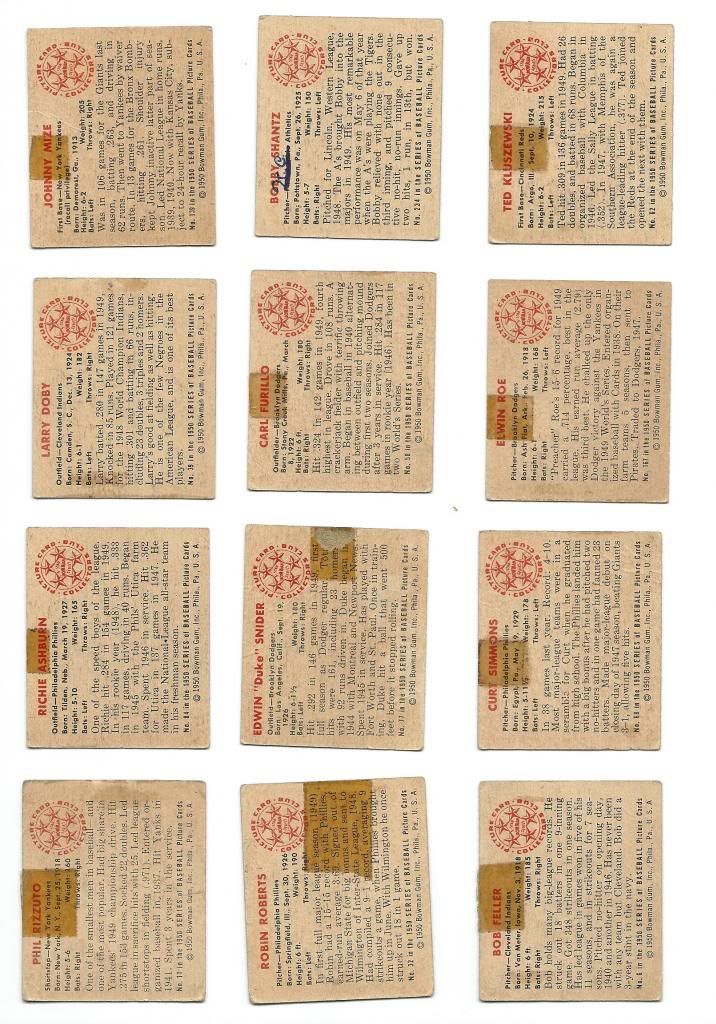 PHIL RIZZUTO
Shortstop—New York Yankees
Born: New York, N. Y., Sept. 25, 1918
Height: 5-6 Weight: 160
Bats: Right Throws: Right
One of the smallest men in baseball—and
one of the most popular. Had big share in
Yankees' 1949 victory in league race. Hit
.275 in 153 games. Socked 22 doubles. Led
league in sacrifice hits with 25. Led league
shortstops in fielding (.971). Entered or-
ganized baseball in 1937. Hit Yanks in
1941. Spent 3 years in the service.
No. 11 in the 1950 SERIES of BASEBALL Picture Cards
© 1950 Bowman Gum, Inc., Phila., Pa., U. S. A.
PICTURE CARD COLLECTORS CLUB
RICHIE ASHBURN
Outfield—Philadelphia Phillies
Born: Tilden, Neb., March 19, 1927
Height: 5-10 Weight: 165
Bats: Left Throws: Right
One of the speed boys of the league.
Richie hit .284 in 154 games in 1949.
In his rookie year, 1948, he hit .333
in 117 games, driving in 40 runs. Began
in 1945 with the Phils' Utica farm
team. Spent 1946 in service. Hit .362
for Utica in 137 games in 1947. He
made the National League all-star team
in his freshman season.
No. 84 in the 1950 SERIES of BASEBALL Picture Cards
© 1950 Bowman Gum, Inc., Phila., Pa., U. S. A.
PICTURE CARD COLLECTORS CLUB
LARRY DOBY
Outfielder—Cleveland Indians
Born: Camden, S. C., Dec. 13, 1924
Height: 6-1 Weight: 182
Bats: Left Throws: Right
Larry batted .280 in 147 games in 1949.
Knocked in 85 runs. Played in 121 games
for the 1948 World Champion Indians,
hitting .301 and batting in 66 runs, in-
cluding 23 doubles, 9 triples and 2 homers.
Larry's good at fielding as well as hitting.
He is one of the few Negroes in the
American League, and is one of its best
players.
No. 39 in the 1950 SERIES of BASEBALL Picture Cards
© 1950 Bowman Gum, Inc., Phila., Pa., U. S. A.
PICTURE CARD COLLECTORS CLUB
JOHNNY MIZE
First Base—New York Yankees
(recall privilege)
Born: Demorest, Ga., 1913
Height: 6-2 Weight: 205
Bats: Left Throws: Right
Was in 106 games for the Giants last
season, batting .263, and driving in
62 runs. Then went to Yankees by waiver
route. In 13 games for the Bronx Bomb-
ers, hitting .261. Shoulder injury
kept Johnny inactive latter part of sea-
son. Led National League in home runs,
1939, 1940. Now with Kansas City, sub-
ject to 24-hour recall by Yanks.
No. 139 in the 1950 SERIES of BASEBALL Picture Cards
© 1950 Bowman Gum, Inc., Phila., Pa., U. S. A.
PICTURE CARD COLLECTORS CLUB
ROBIN ROBERTS
Pitcher—Philadelphia Phillies
Born: Springfield, Ill., Sept. 30, 1926
Height: 6 ft. Weight: 190
Bats: Right Throws: Right
In first full major league season (1949)
Robin had a 15-15 record with Phillies,
earned-run average 3.69. Signed out of
Michigan State for big bonus and sent to
Wilmington of Inter-State League, 1948.
Had compiled a 9-1 record, averaging 9
strikeouts a game, when Phillies brought
him up in June. With Wilmington he once
struck out 18 in 1 game.
No. 32 in the 1950 SERIES of BASEBALL Picture Cards
© 1950 Bowman Gum, Inc., Phila., Pa., U. S. A.
PICTURE CARD COLLECTORS CLUB
EDWIN "Duke" SNIDER
Outfield—Brooklyn Dodgers
Born: Los Angeles, Calif., Sept. 19,
1926
Height: 6-½ Weight: 180
Bats: Left Throws: Right
Hit .292 in 146 games in 1949, first
full season as Dodger regular. Total
hits were 161, including 23 homers
with 92 runs driven in. Duke began in
1944 with Montreal and Newport News.
Spent 1945 in service. Has played with
Fort Worth and St. Paul. Once in train-
ing, Duke hit a ball that went 500
feet before it stopped rolling.
No. 77 in the 1950 SERIES of BASEBALL Picture Cards
© 1950 Bowman Gum, Inc., Phila., Pa., U. S. A.
PICTURE CARD COLLECTORS CLUB
CARL FURILLO
Outfielder—Brooklyn Dodgers
Born: Stony Creek Mills, Pa., March
8, 1922
Height: 6 ft. Weight: 180
Bats: Right Throws: Right
Hit .324 in 142 games in 1949—fourth
highest in league. Drove in 108 runs. A
crackerjack fielder with terrific throwing
arm. Began in baseball in 1940 alternat-
ing between outfield and pitching mound
during first two seasons. Joined Dodgers
after 3 years in service. Hit .284 in 117
games in rookie year (1946). Has been in
two World's Series.
No. 58 in the 1950 SERIES of BASEBALL Picture Cards
© 1950 Bowman Gum, Inc., Phila., Pa., U. S. A.
PICTURE CARD COLLECTORS CLUB
BOBBY SHANTZ
Pitcher— Athletics
Born: Pottstown, Pa., Sept. 26, 1925
Height: 5-7 Weight: 150
Bats: Right Throws: Left
Pitched for Lincoln, Western League,
1948. The A's brought Bobby into the
majors in 1949. His most remarkable
performance was on May 6 of that year
when the A's were playing the Tigers.
Bobby relieved with none out in the
third inning and pitched 9 consecu-
tive no-hit, no-run innings. Gave up
two hits, a run, in 13th, but won.
No. 234 in the 1950 SERIES of BASEBALL Picture Cards
© 1950 Bowman Gum, Inc., Phila., Pa., U. S. A.
PICTURE CARD COLLECTORS CLUB
BOB FELLER
Pitcher—Cleveland Indians
Born: Van Meter, Iowa, Nov. 3, 1918
Height: 6 ft. Weight: 185
Bats: Right Throws: Right
Bob holds many big-league records. He
struck out 18 batters in one 9-inning
game. Got 348 strikeouts in one season.
Has led league in games won in five of his
11 seasons, and in strikeouts for 7 sea-
sons. Pitched no-hitter on opening day,
1940 and another in 1946. Has never been
with any team but Cleveland. Bob did a
3-year stint in the navy.
No. 6 in the 1950 SERIES of BASEBALL Picture Cards
© 1950 Bowman Gum, Inc., Phila., Pa., U. S. A.
PICTURE CARD COLLECTORS CLUB
CURT SIMMONS
Pitcher—Philadelphia Phillies
Born: Egypt, Pa., May 19, 1929
Height: 5-11½ Weight: 178
Bats: Left Throws: Left
In 38 games last year. Record: 4-10.
Most major-league teams were in a
scramble for Curt when he graduated
from high school. The Phillies landed him
with a big bonus after he had pitched two
no-hitters and in one game had fanned 23
batters. Made major-league debut on
closing day of 1947 season, beating Giants
3-1, allowing five hits.
No. 68 in the 1950 SERIES of BASEBALL Picture Cards
© 1950 Bowman Gum, Inc., Phila., Pa., U. S. A.
PICTURE CARD COLLECTORS CLUB
ELWIN ROE
Pitcher—Brooklyn Dodgers
Born: Ash Flat, Ark., Feb. 26, 1918
Height: 6-1 Weight: 168
Bats: Right Throws: Left
"Preacher" Roe's 15-6 record for 1949
carried a .714 percentage, best in the
league. His earned run average (2.79)
was third best. He chalked up the only
Dodger victory against the Yankees in
the 1949 World's Series. Entered organ-
ized baseball with Cards in 1938. On their
farm teams 5 seasons, then sent to
Pirates. Traded to Dodgers, 1947.
No. 167 in the 1950 SERIES of BASEBALL Picture Cards
© 1950 Bowman Gum, Inc., Phila., Pa., U. S. A.
PICTURE CARD COLLECTORS CLUB
TED KLUSZEWSKI
First Base—Cincinnati Reds
Born: Argo, Ill., Sept. 10, 1924
Height: 6-2 Weight: 215
Bats: Left Throws: Left
Ted hit .309 in 136 games in 1949. Had 26
doubles, and batted in 68 runs. Began in
organized baseball with Columbia in
1946. Led the Sally League in batting
(.352). In 1947, with Memphis of the
Southern Association, he was again a
league-leading hitter (.377). Ted joined
the Reds at the end of the season and
opened the next with them.
No. 62 in the 1950 SERIES of BASEBALL Picture Cards
© 1950 Bowman Gum, Inc., Phila., Pa., U. S. A.
PICTURE CARD COLLECTORS CLUB